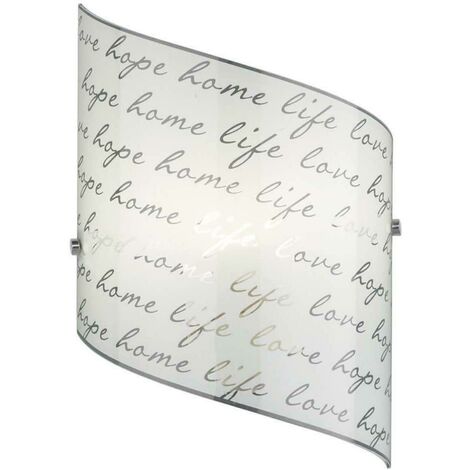 love hope home life love
hope home life love hope
love hope home life love
hope home life love hope
love hope home life love
hope home life love hope
hope home life love